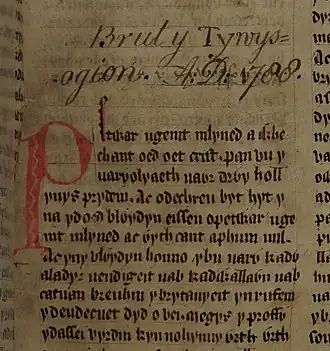 Brut y Tywys=
ogion. A.D. 1788.
Petwar ugeint mlyned a chwe
chant oed oet crist. pan vu y
varvolyaeth vawr drwy holl
ynys prydein. Ac odechreu byt hyt y
na yd oed blwydyn eisseu opetwar uge
int mlyned ac wyth cant aphum mil.
Ac yny vlwydyn honno y bu varw kadw
aladyr vendigeit vab kadwallawn vab
catuan brenhin y brytanyeit yn rufein
y deudecuet dyd o vei. megys y proffw
ydassei vyrdin kyn nohynny wrth wrth